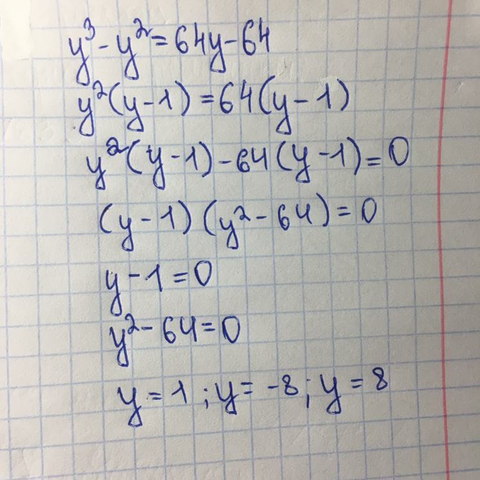 y³ - y² = 64y - 64
y²(y - 1) = 64(y - 1)
y²(y - 1) - 64(y - 1) = 0
(y - 1)(y² - 64) = 0
y - 1 = 0
y² - 64 = 0
y = 1 ; y = -8 ; y = 8